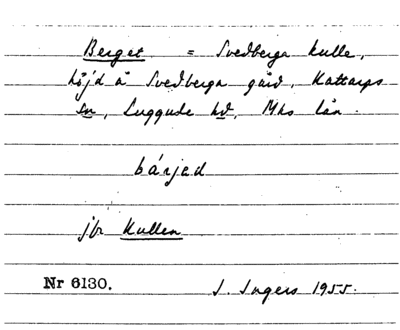 Berget = Svedberga kulle,
höjd å Svedberga gård, Kattarps
sn, Luggude hd, Mhs län.
bárjad
jfr Kullen
Nr 6130. I. Ingers 1955.